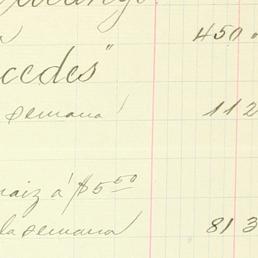 450
cedes"
semana 112
maiz á $5.50
la semana 813